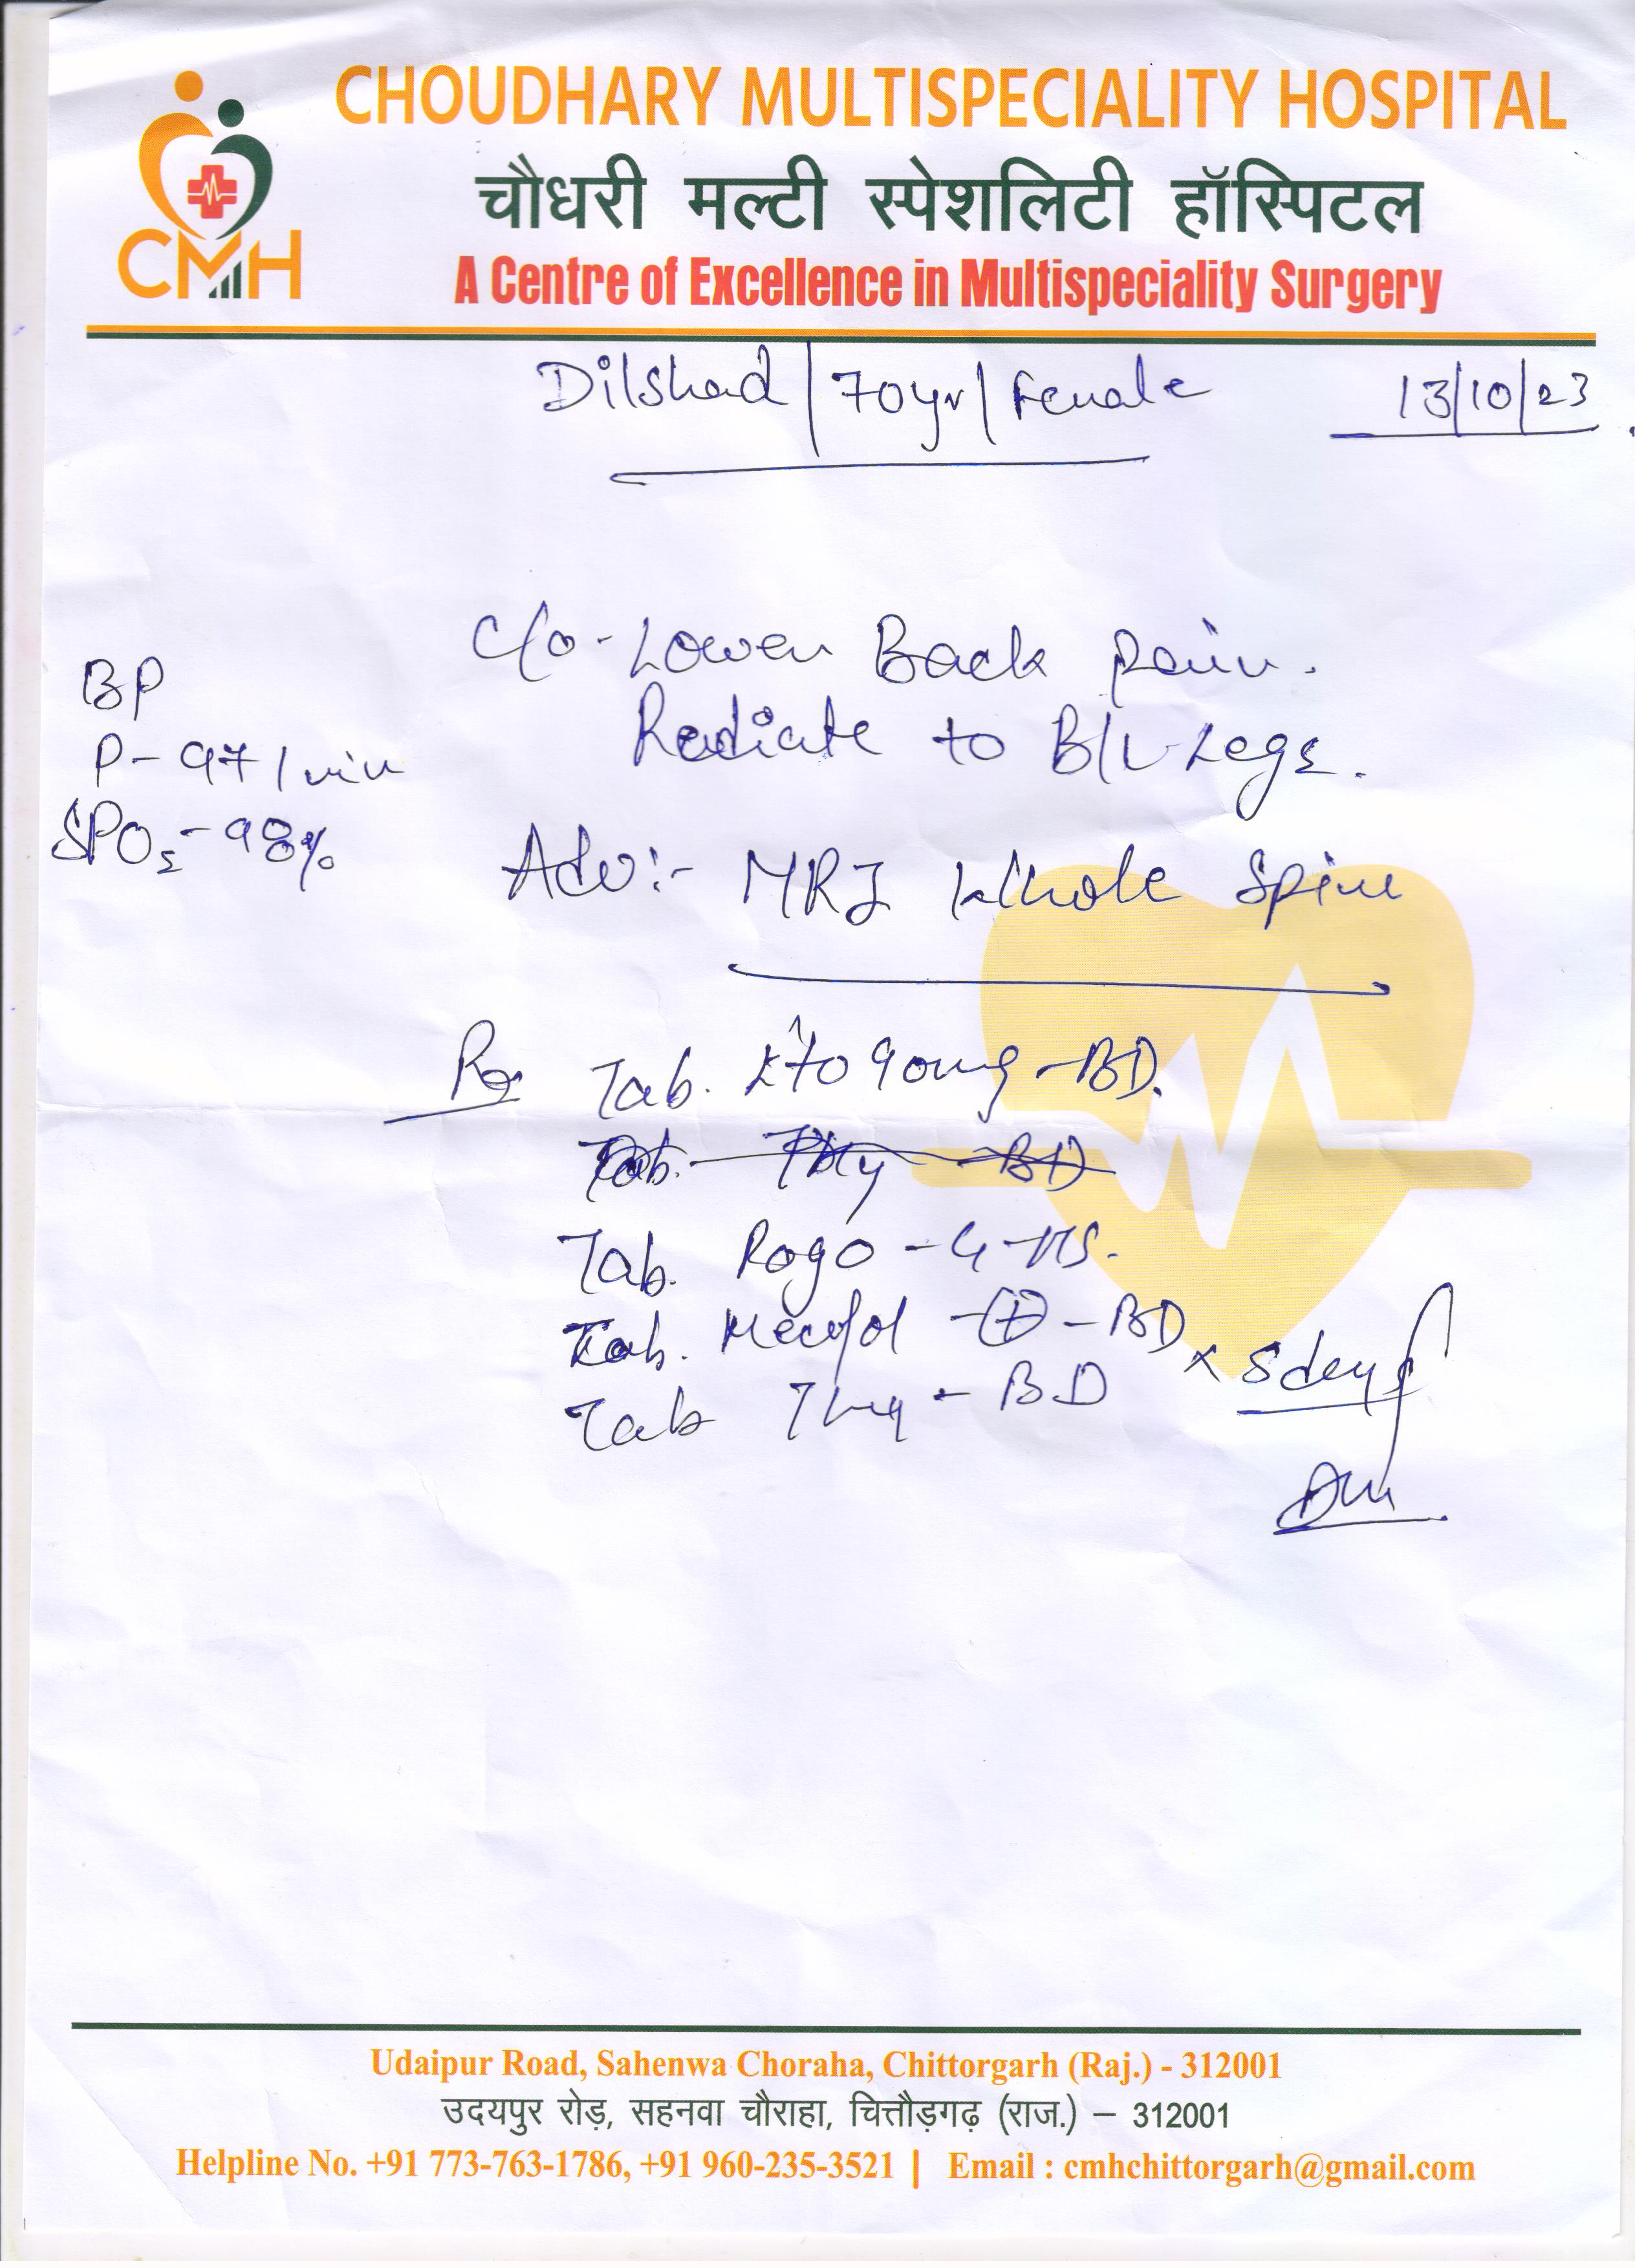 CHOUDHARY MULTISPECIALITY HOSPITAL
चौधरी मल्टी स्पेशलिटी हॉस्पिटल
CMH
A Centre of Excellence in Multispeciality Surgery
Dilshad / 70yr / Female 13/10/23
C/o - Lower Back Pain.
BP
Radiate to B/L Legs.
P - 97/min
SPO2 - 98%
Adv:- MRI Whole Spine
Rx Tab. 90mg - BD.
Tab. - BD
Tab. - HS.
Tab. - BD
Tab - BD x 5 days
Udaipur Road, Sahenwa Choraha, Chittorgarh (Raj.) - 312001
उदयपुर रोड़, सहनवा चौराहा, चित्तौड़गढ़ (राज.) – 312001
Helpline No. +91 773-763-1786, +91 960-235-3521 | Email : cmhchittorgarh@gmail.com